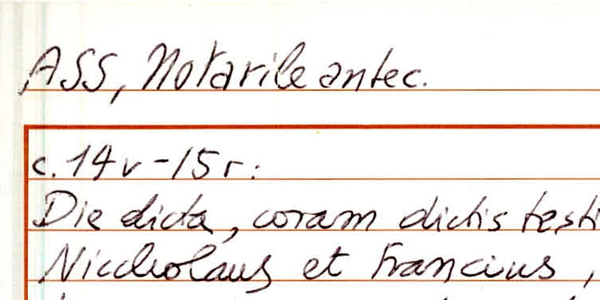 ASS, Notarile antec.
c. 14v-15r:
Die dicta, coram dictis testi
Niccholaus et Francius,